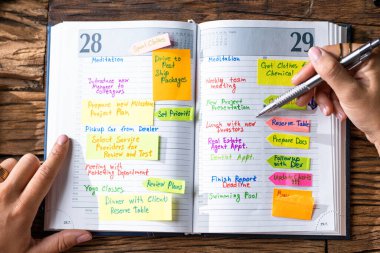 28
Send Clothes
Meditation
Drive to
Post
Ship
Packages
Introduce new
Manager to
Colleagues
Prepare new Milestone
Project Plan
Set Priority
Pickup Car from Dealer
Select Service
Providers for
Review and Test
Meeting with
Marketing Department
Review Plans
Yoga Classes
Dinner with Client
Reserve Table
29
Meditation
Get Clothes f
Chemical
Weekly team
meeting
New Project
Presentation
Lunch with new
Investors
Reserve Table
Real Estate
Agent Appt.
Prepare Docs
Dentist Appt.
Followup
with Dev
Finish Report
Deadline
Update Charts
Swimming Pool